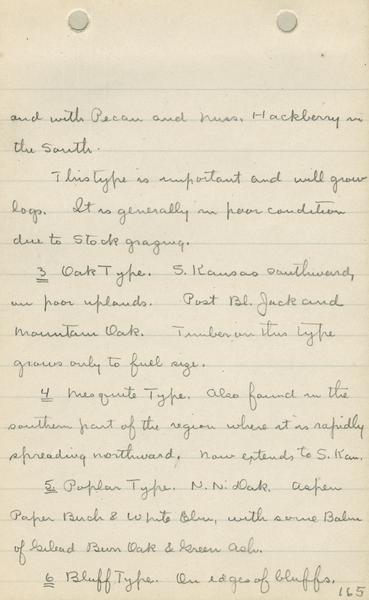 and with Pecan and Miss. Hackberry in
the South.
This type is important and will grow
logs. It is generally in poor condition
due to Stock grazing.
3 Oak Type. S. Kansas southward,
on poor uplands. Post Bl. Jack and
Mountain Oak. Timber on this type
grows only to fuel size.
4 Mesquite Type. Also found in the
southern part of the region where it is rapidly
spreading northward, now extends to S. Kan.
5. Poplar Type. N. N. Dak. Aspen
Paper Birch & White Elm, with some Balm
of Gilead Burr Oak & Green Ash.
6 Bluff Type. On edges of bluffs.
165